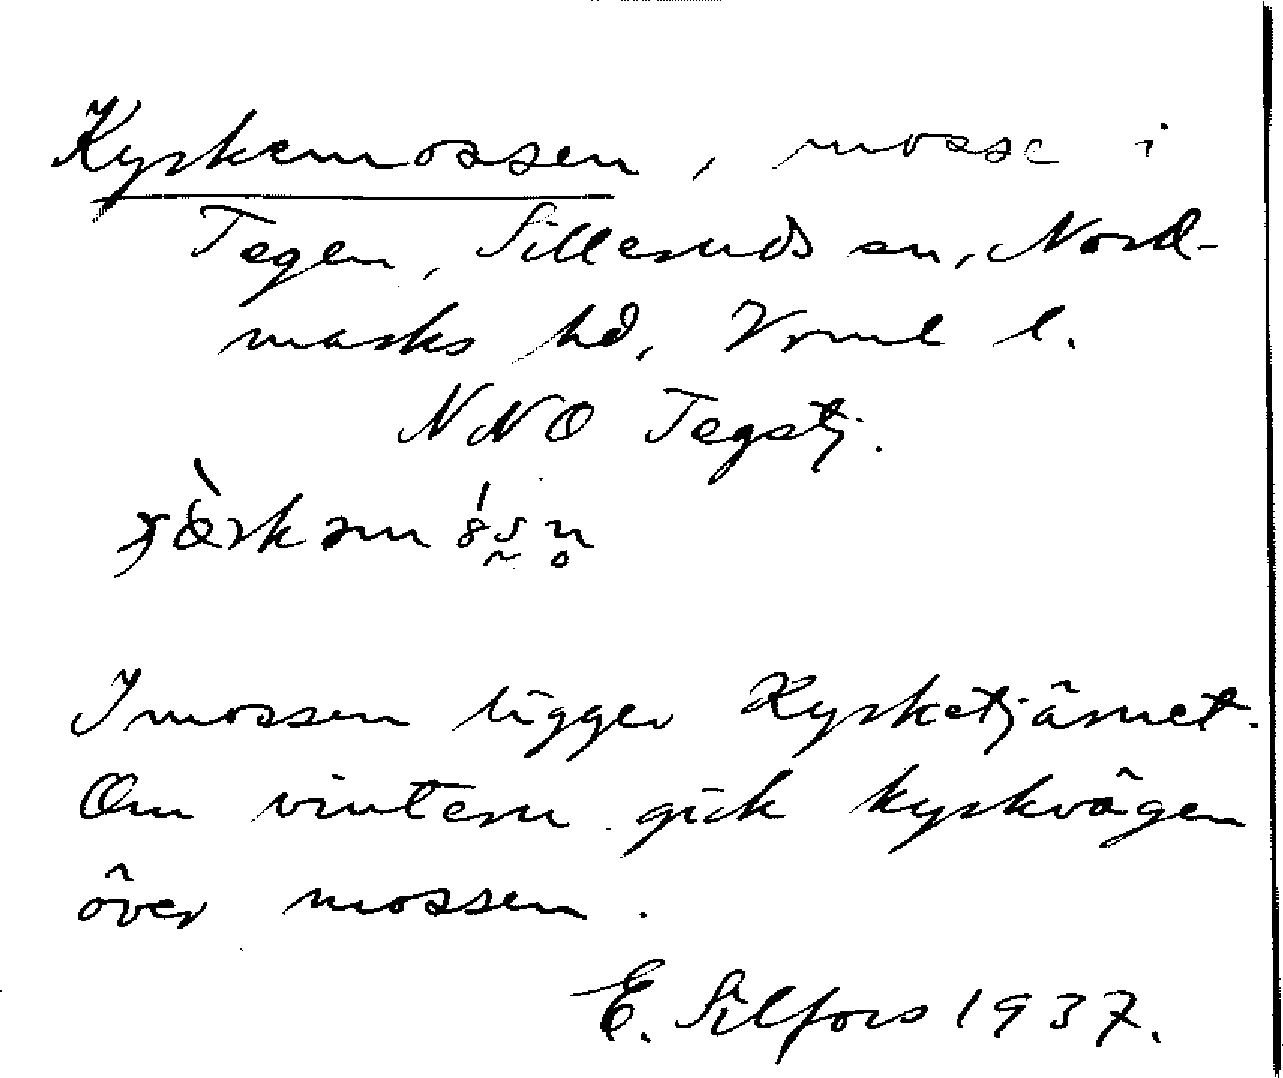 Kyrkemossen, mosse i
Tegen, Silleruds sn, Nord-
marks hd, Vrml l.
NNO Tegstj.
I mossen ligger Kyrketjärnet.
Om vintern gick kyrkvägen
över mossen.
E. Silfors 1937.